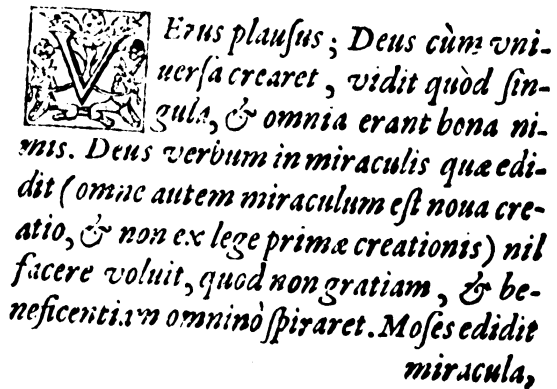 VErus plauſus; Deus cùm vni-
uerſa crearet, vidit quòd ſin-
gula, & omnia erant bona ni-
mis. Deus verbum in miraculis quæ edi-
dit (omne autem miraculum eſt noua cre-
atio, & non ex lege primæ creationis) nil
facere voluit, quod non gratiam, & be-
neficentiam omninò ſpiraret. Moſes edidit
miracula,